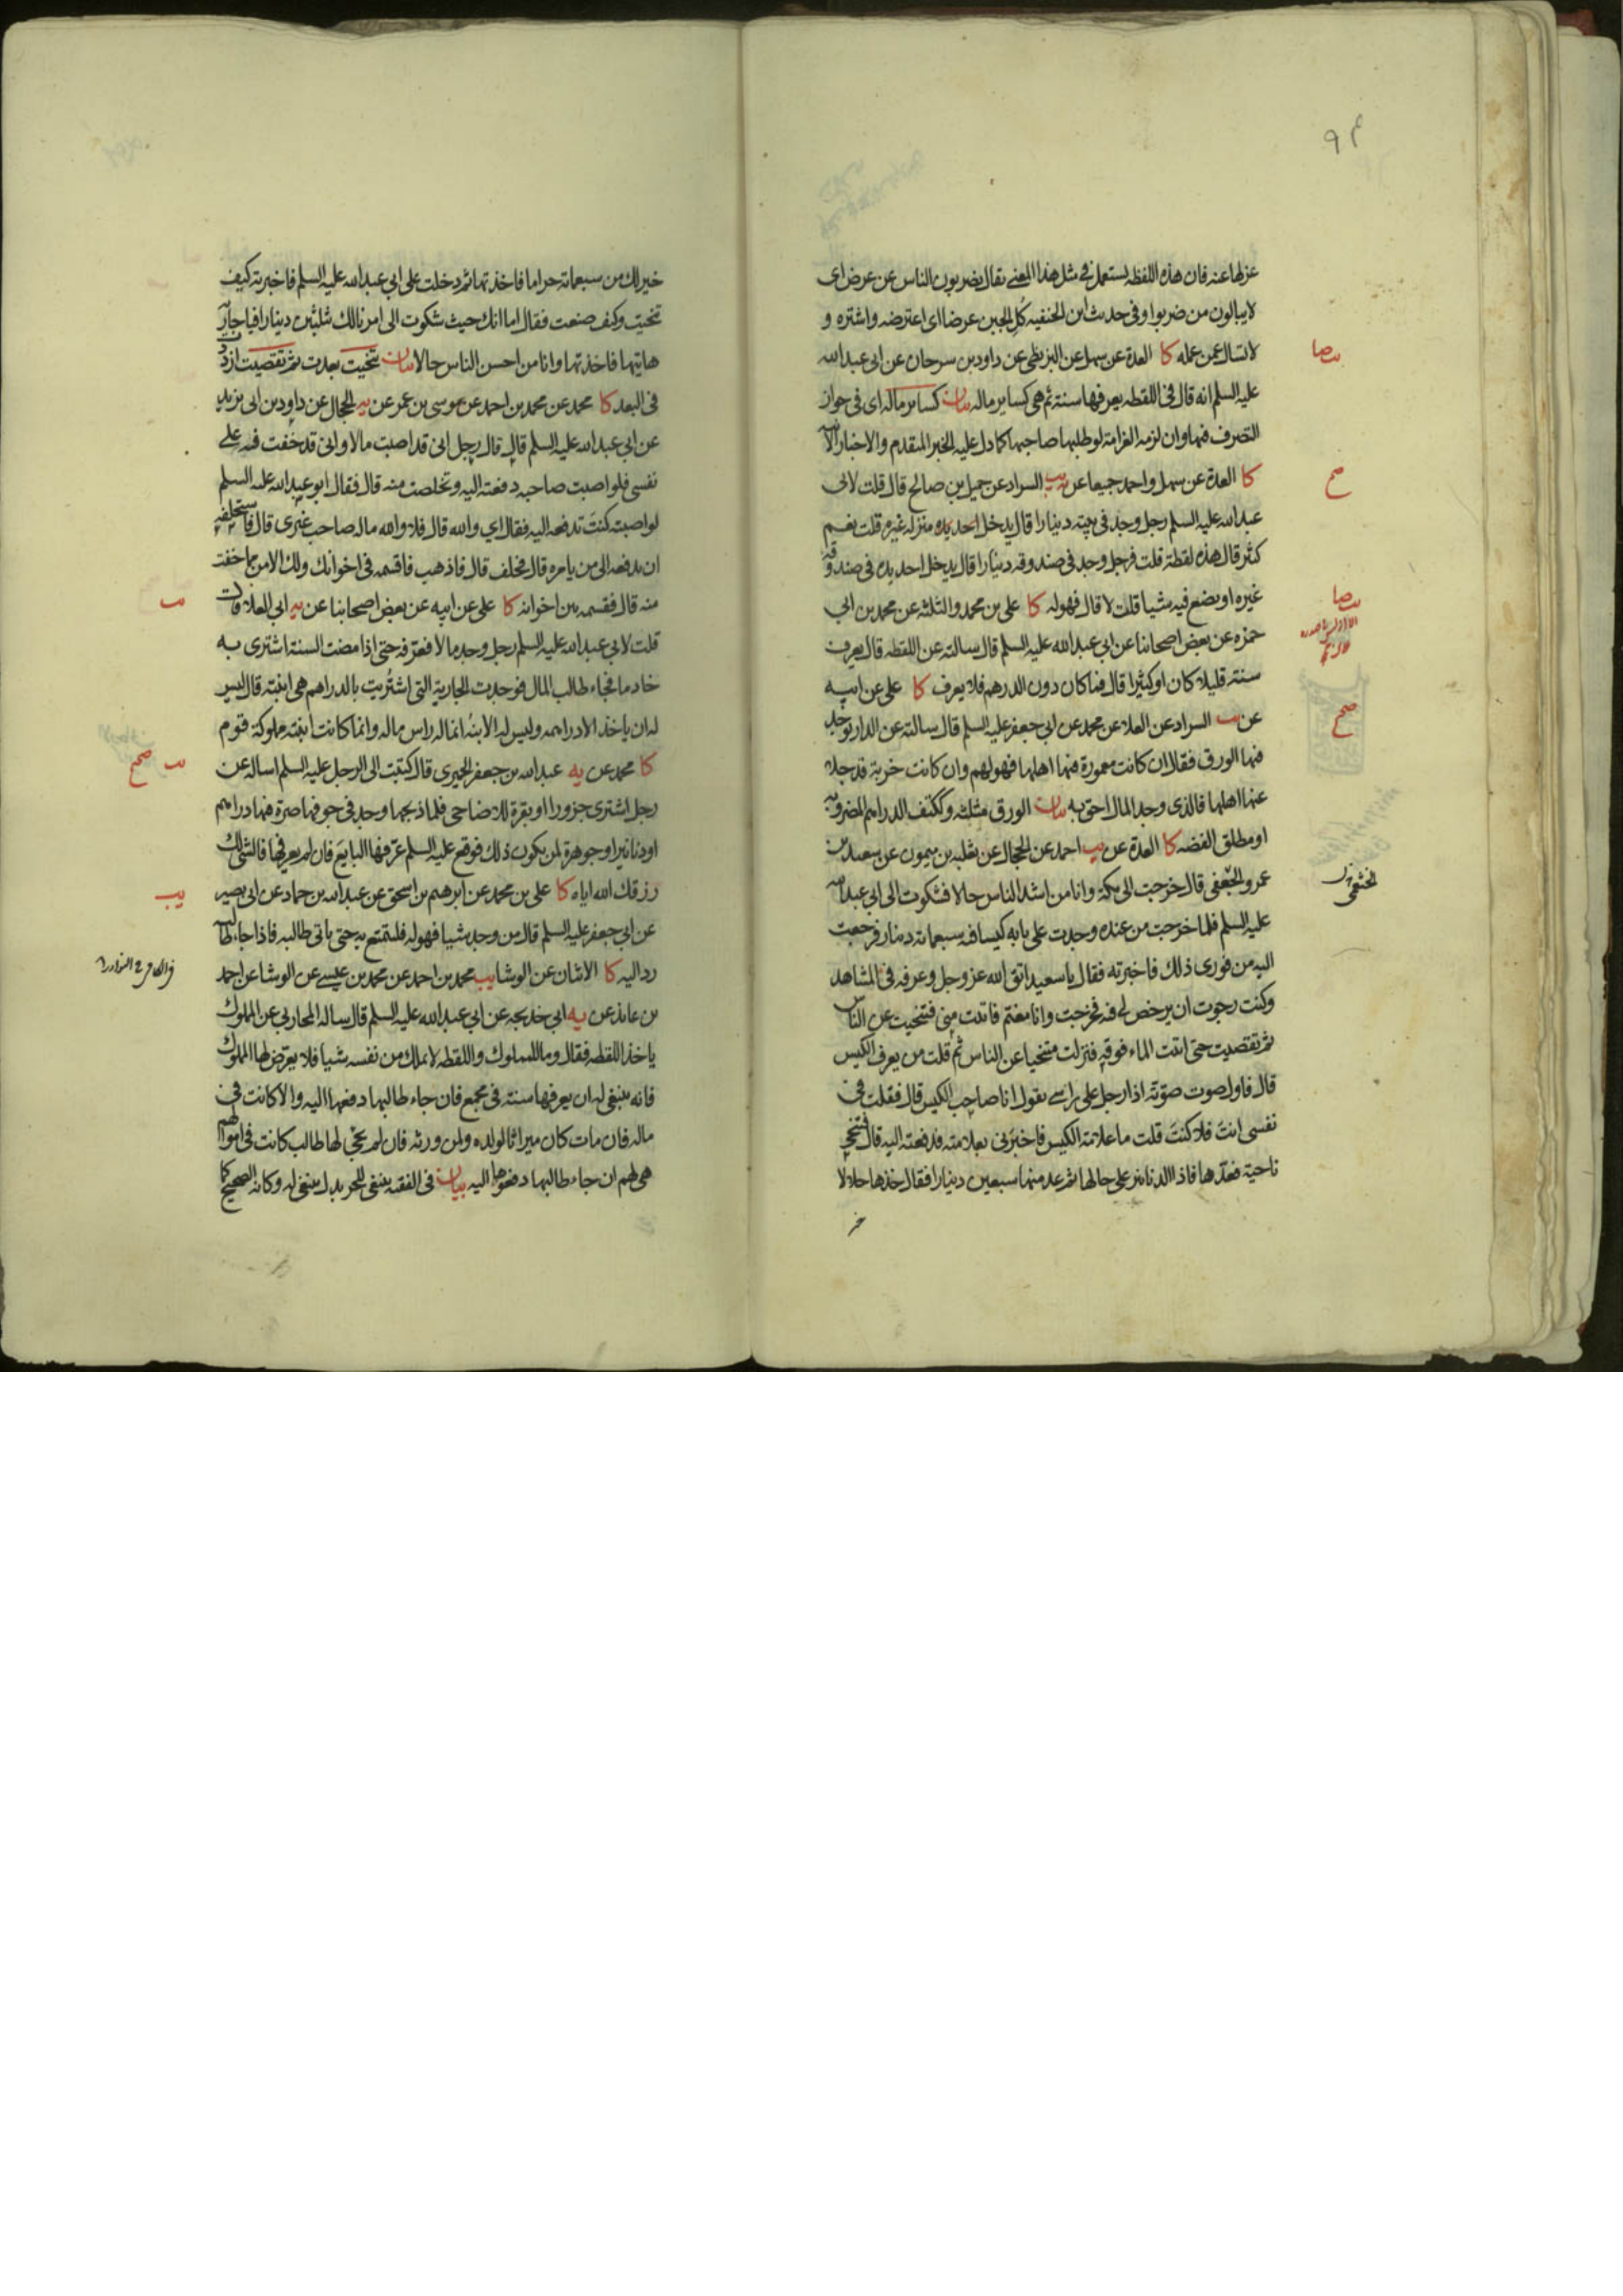 عزلها عنه فان هذه اللفظه يستعمل في مثل هذا المعنى يقال يضربون الناس عن عرض اى
لا يبالون من ضربوا وفى حديث ابن الحنفيه كل الجبن عرضا اى اعترضه واشتره و
لا تسال عمن عمله كا العدة عن سهل عن البزنطى عن داود بن سرحان عن ابى عبد الله
عليه السلم انه قال فى اللقطه يعرفها سنة ثم هى كساير ماله بيان كساير ماله اى فى جواز
التصرف فيها وان لزمه الغرامة لو طلبها صاحبها كما دل عليه الخبر المتقدم والاخبار الاتيه
كا العدة عن سهل واحمد جميعا عن يب السراد عن جميل بن صالح قال قلت لابى
عبد الله عليه السلم رجل وجد فى بيته دينارا قال يدخل احد يده منزله غيره قلت نعم
كثير قال هذه لقطة قلت فرجل وجد فى صندوقه دينارا قال يدخل احد يده فى صندوقه
غيره او يضع فيه شيا قلت لا قال فهو له كا على بن محمد والثلثة عن محمد بن ابى
حمزه عن بعض اصحابنا عن ابى عبد الله عليه السلم قال سالته عن اللقطه قال يعرف
سنة قليلا كان او كثيرا قال فما كان دون الدرهم فلا يعرف كا على عن ابيه
عن يب السراد عن العلا عن محمد عن ابى جعفر عليه السلم قال سالته عن الدار توجد
فيها الورق فقال ان كانت معمورة فيها اهلها فهو لهم وان كانت خربة قد جلا
عنها اهلها فالذى وجد المال احق به بيان الورق مثلثه وككتف الدراهم المضروبه
او مطلق الفضه كا العدة عن يب احمد عن الحجال عن ثعلبه بن ميمون عن سعيد بن
عمرو الجعفى قال خرجت الى مكة وانا من اشد الناس حالا فشكوت الى ابى عبد الله
عليه السلم فلما خرجت من عنده وجدت على بابه كيسا فيه سبعمائة دينار فرجعت
اليه من فورى ذلك فاخبرته فقال يا سعيد اتق الله عز وجل وعرفه فى المشاهد
وكنت رجوت ان يرخص لى فيه فخرجت وانا مغتم فاتيت منى فتنحيت عن الناس
ثم تقصيت حتى اتيت الماء فوقيه فنزلت متنحيا عن الناس ثم قلت من يعرف الكيس
قال فاول صوت صوته اذا رجل على راسى يقول انا صاحب الكيس قال فقلت فى
نفسى انت فلا كنت قلت ما علامة الكيس فاخبرنى بعلامته فدفعته اليه قال فتنحى
ناحية فعدها فاذا الدنانير على حالها ثم عد منها سبعين دينارا فقال خذها حلالا
خير
صح
صحيح
الخثعمى
خير لك من سبعمائة حراما فاخذتها ثم دخلت على ابى عبد الله عليه السلم فاخبرته كيف
تنحيت وكيف صنعت فقال اما انك حيث شكوت الى امرنا لك بثلثين دينارا يا جاريه
هاتيها فاخذتها وانا من احسن الناس حالا بيان تنحيت بعدت ثم تقصيت ازددت
فى البعد كا محمد عن محمد بن احمد عن موسى بن عمر عن يه الحجال عن داود بن ابى يزيد
عن ابى عبد الله عليه السلم قال قال رجل انى قد اصبت مالا وانى قد خفت فيه على
نفسى فلو اصبت صاحبه دفعته اليه وتخلصت منه قال فقال ابو عبد الله عليه السلم
لو اصبته كنت تدفعه اليه فقال اى والله قال فلا والله ما له صاحب غيرى قال فاستحلفه
ان يدفعه الى من يامره قال فحلف قال فاذهب فاقسمه فى اخوانك ولك الامن مما خفت
منه قال فقسمه بين اخوانه كا على عن ابيه عن بعض اصحابنا عن يه ابى العلا قال
قلت لابى عبد الله عليه السلم رجل وجد مالا فعرفه حتى اذا مضت السنة اشترى به
خادما فجاء طالب المال فوجد الجارية التى اشتريت بالدراهم هى ابنته قال ليس
له ان ياخذ الا دراهمه وليس له الابنه انما له راس ماله وانما كانت ابنته مملوكة قوم
كا محمد عن يه عبد الله بن جعفر الحميرى قال كتبت الى الرجل عليه السلم اساله عن
رجل اشترى جزورا او بقرة للاضاحى فلما ذبحها وجد فى جوفها صرة فيها دراهم
او دنانير او جوهرة لمن يكون ذلك فوقع عليه السلم عرفها البايع فان لم يعرفها فالشى لك
رزقك الله اياه كا على بن محمد عن ابرهيم بن اسحق عن عبد الله بن حماد عن ابى بصير
عن ابى جعفر عليه السلم قال من وجد شيا فهو له فليتمتع به حتى ياتى طالبه فاذا جاء طالبه
رد اليه كا الاثنان عن الوشا يب محمد بن احمد عن محمد بن عيسى عن الوشا عن احمد
بن عائذ عن يه ابى خديجه عن ابى عبد الله عليه السلم قال ساله المحاربى عن المملوك
ياخذ اللقطه فقال وما للمملوك واللقطه لا يملك من نفسه شيا فلا يعرض لها المملوك
فانه ينبغى له ان يعرفها سنة فى مجمع فان جاء طالبها دفعها اليه والا كانت فى
ماله فان مات كان ميراثا لولده ولمن ورثه فان لم يجئ لها طالب كانت فى اموالهم
هى لهم ان جاء طالبها دفعوها اليه بيان فى الفقيه ينبغى للحر بدل ينبغى له وكانه الصحيح كا
صحيح
يب